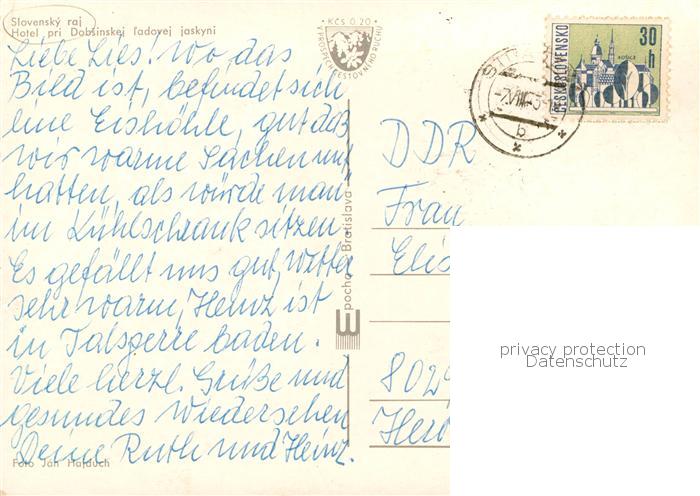 Slovenský raj
Hotel pri Dobšinskej ľadovej jaskyni
Liebe Lies! Wo das
Bild ist, befindet sich
eine Eishöhle, gut daß
wir warme Sachen mit
hatten, als würde man
im Kühlschrank sitzen.
Es gefällt uns gut, Wetter
sehr warm, Heinz ist
in Talsperre baden.
Viele herzl. Grüße und
gesundes Wiedersehen
Deine Ruth und Heinz.
Foto Ján Hajduch
KČS 0,20
V PROSPECH CESTOVNÉHO RUCHU
pocha Bratislava
ČESKOSLOVENSKO
30 h
KOŠICE
b
DDR
Frau
Elis
802
privacy protection
Datenschutz